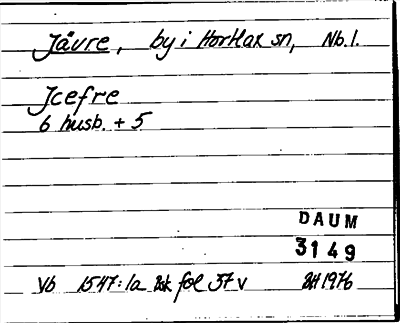 Jävre, by i Hortlax sn, Nb.l.
Jcefre
6 husb. + 5
DAUM
3149
Vb 1547:1a fol 37 v 1976